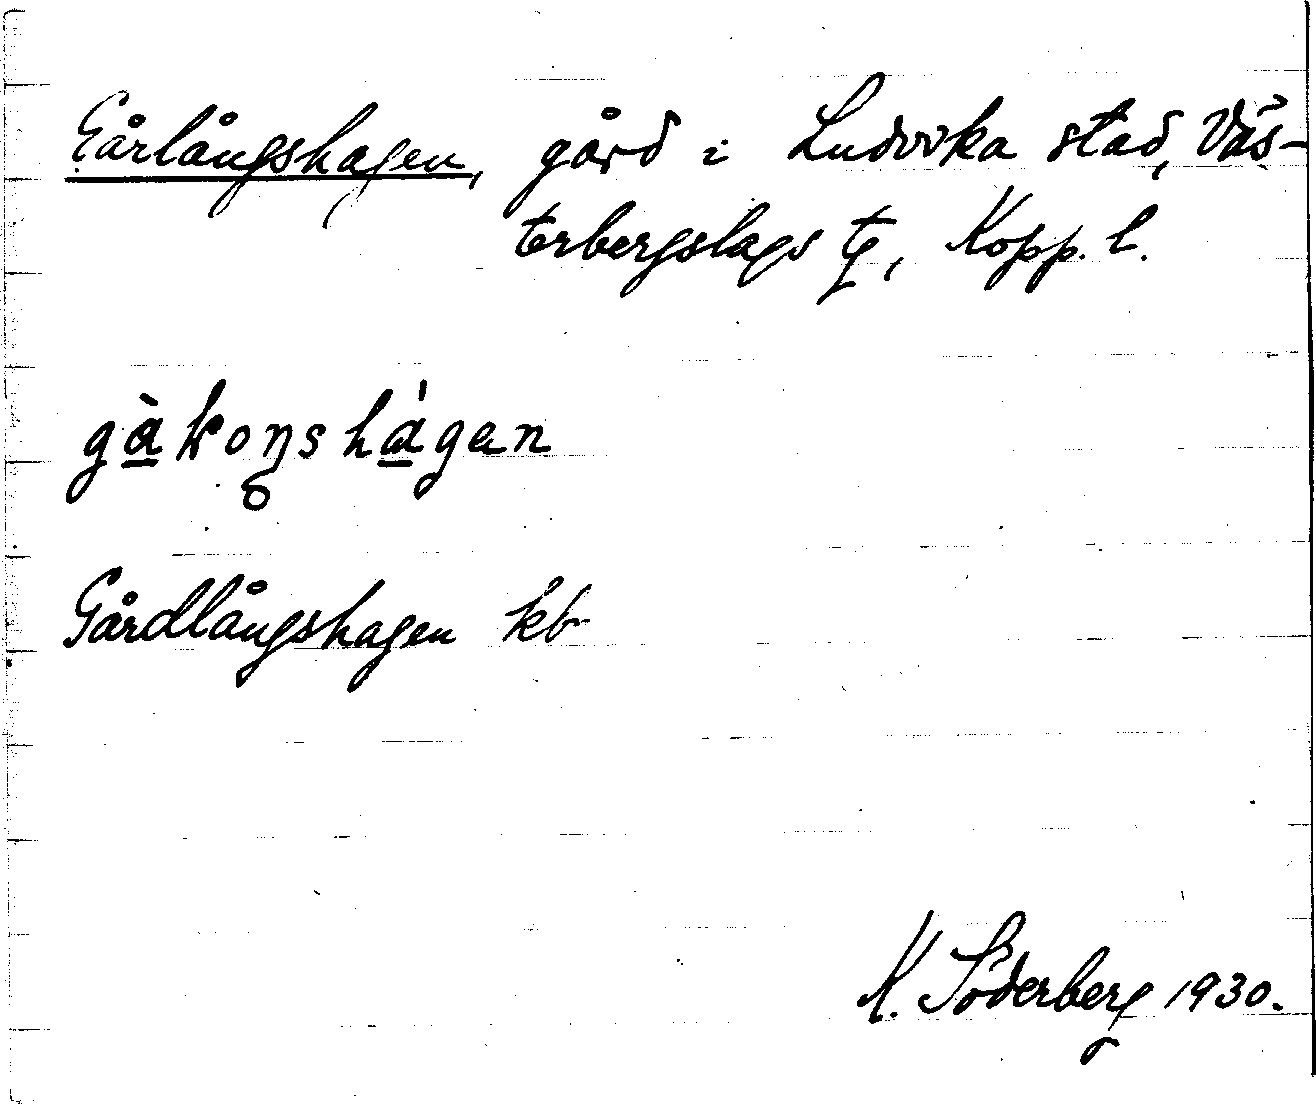 Gårlångshagen, gård i Ludvika stad, Väs-
terbergslags tg, Kopp. l.
gàkoŋshágen
Gårdlångshagen kb
K. Söderberg 1930.